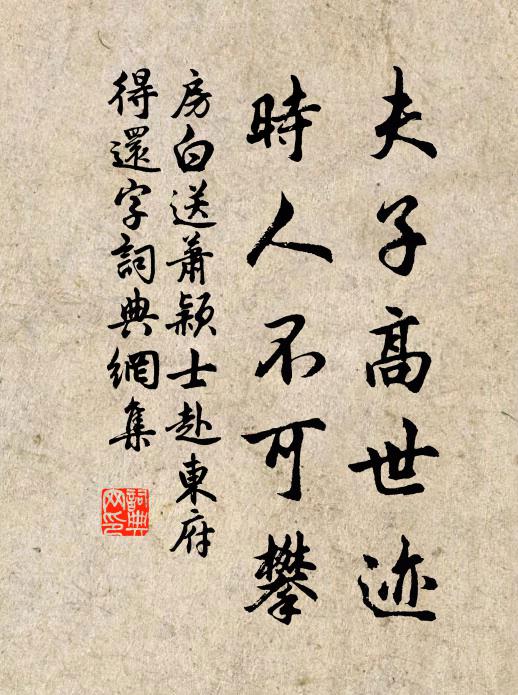 夫子高世迹
時人不可攀
房白送蕭颖士赴東府
得還字詞典網集
詞典网印